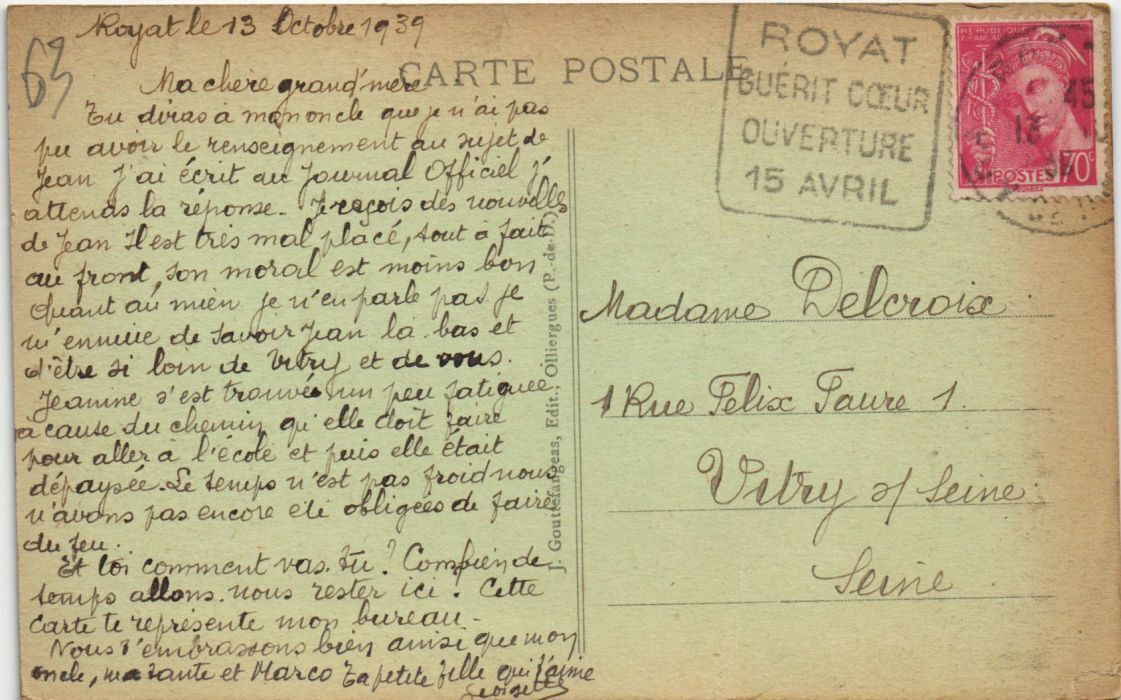 Royat le 13 Octobre 1939
63
CARTE POSTALE
Ma chère grand'mère
Tu diras à mon oncle que je n'ai pas
pu avoir le renseignement au sujet de
Jean J'ai écrit au Journal Officiel j'
attends la réponse. Je reçois des nouvelles
de Jean Il est très mal placé, tout à fait
au front, son moral est moins bon
Quant au mien je n'en parle pas je
m'ennuie de savoir Jean là-bas et
d'être si loin de Vitry et de vous.
Jeanne s'est trouvée un peu fatiguée
à cause du chemin qu'elle doit faire
pour aller à l'école et puis elle était
dépaysée. Le temps n'est pas froid nous
n'avons pas encore été obligées de faire
du feu.
Et toi comment vas-tu? Combien de
temps allons-nous rester ici? Cette
carte te représente mon bureau.
Nous t'embrassons bien ainsi que mon
oncle, ma tante et Marco Ta petite fille qui t'aime
J. Gouttefangeas, Edit., Olliergues (P.-de-D.)
ROYAT
GUÉRIT CŒUR
OUVERTURE
15 AVRIL
RÉPUBLIQUE
FRANÇAISE
45
13
70c
POSTES
Madame Delcroix
1 Rue Felix Faure 1.
Vitry s/ Seine
Seine